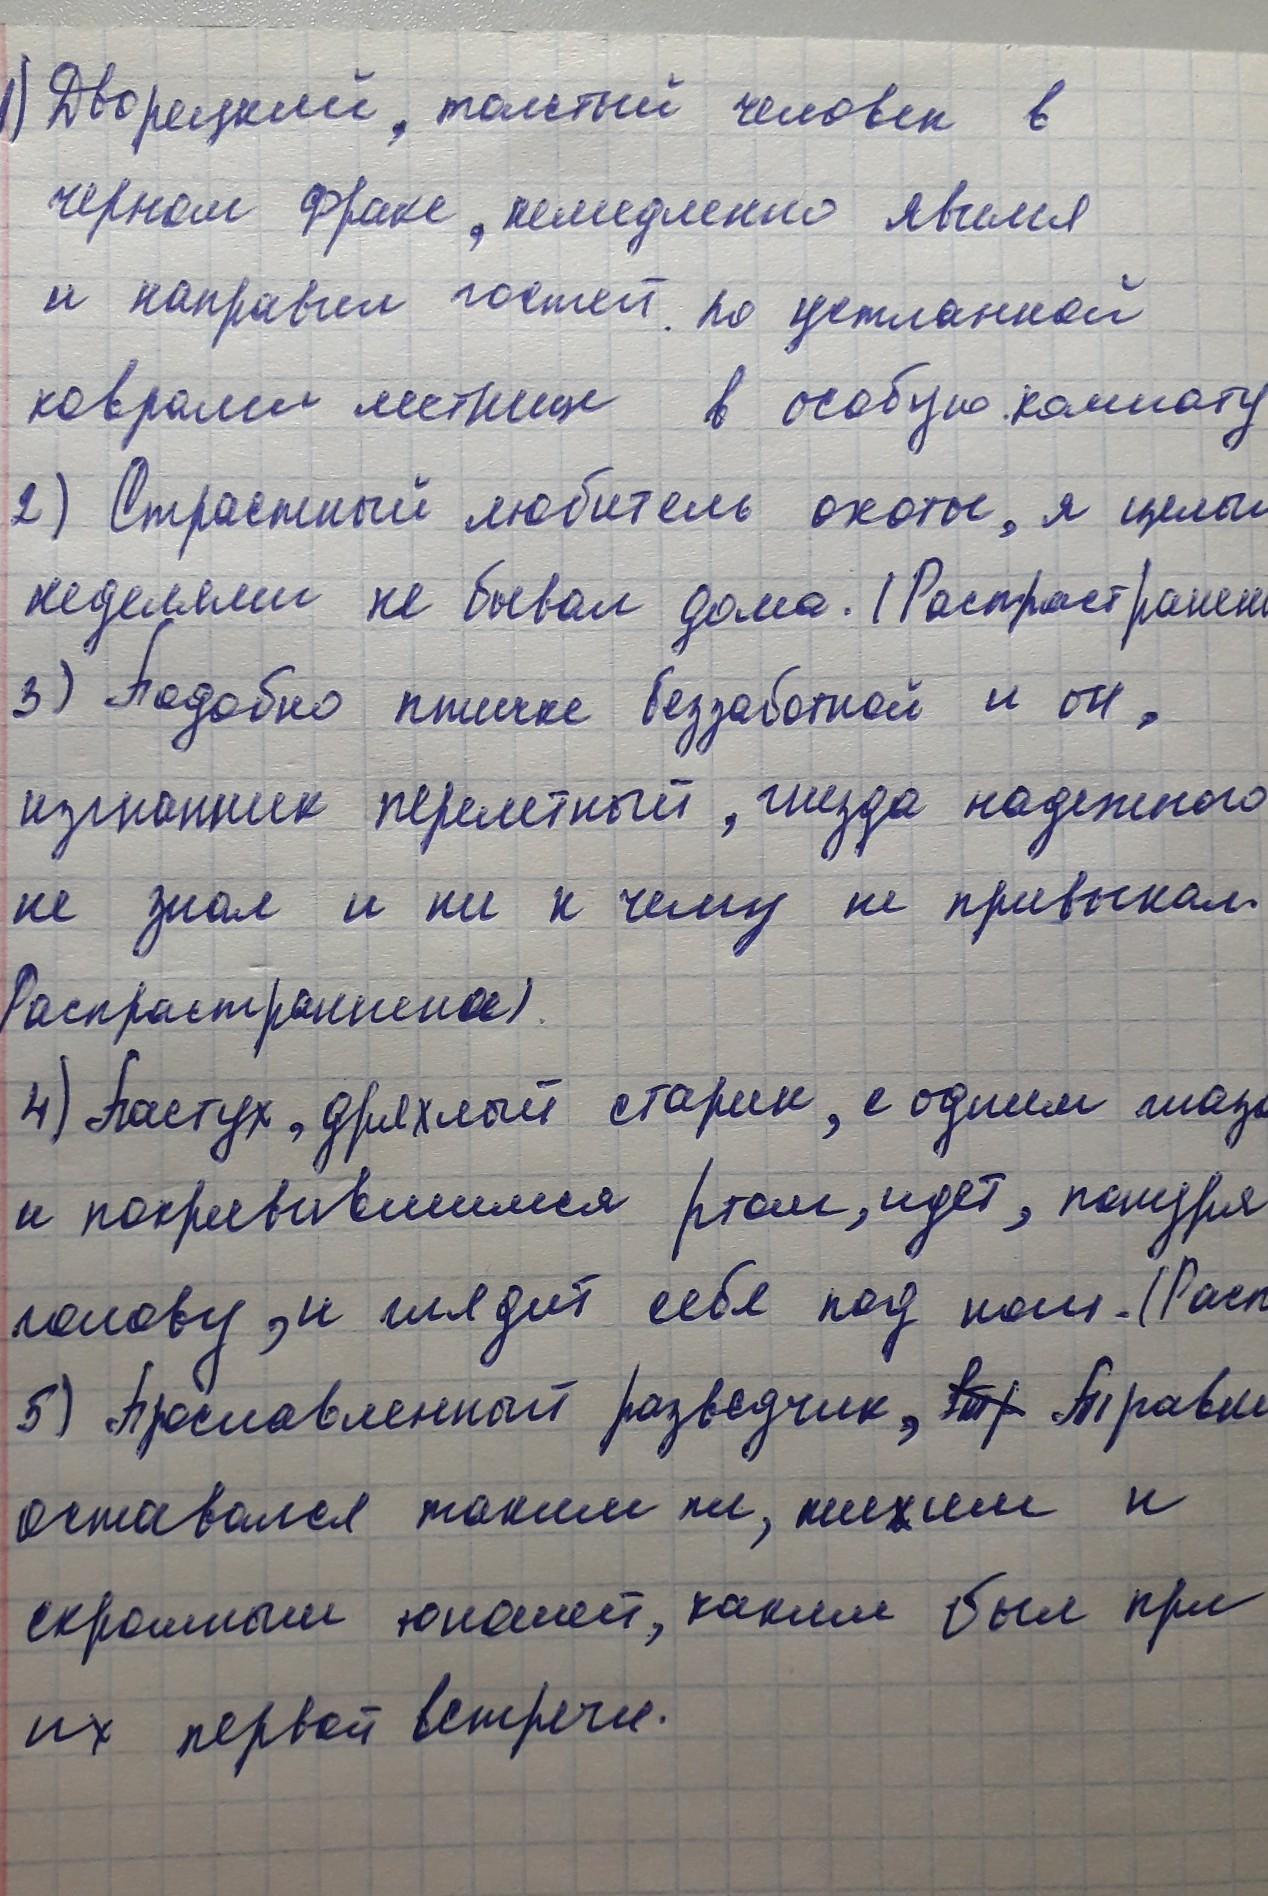 1) Дворецкий, толстый человек в
черном фраке, немедленно явился
и направил гостей по устланной
коврами лестнице в особую комнату
2) Страстный любитель охоты, я целы
неделями не бывал дома. (Распрастранен
3) Подобно птичке беззаботной и он,
изгнанник перелетный, гнезда надежного
не знал и ни к чему не привыкал.
Распрастраннена).
4) Пастух, дряхлый старик, с одним глазо
и покривившимся ртом, идет, понуря
голову, и глядит себе под ноги. (Расп
5) Прославленный разведчик, Травки
оставался таким тихим и
скромным юношей, каким был при
их первой встречи.